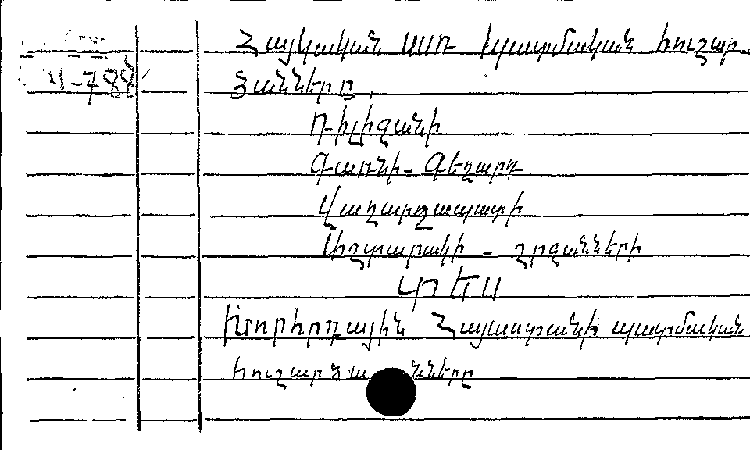 Հայկական ՍՍՌ պատմական հուշար-
Ա-788
ձանները.
Դիլիջանի
Գառնի - Գեղարդ
Վաղարշապատի
Աշտարակի - շրջանների
Տես
Խորհրդային Հայաստանի պատմական
հուշարձանները